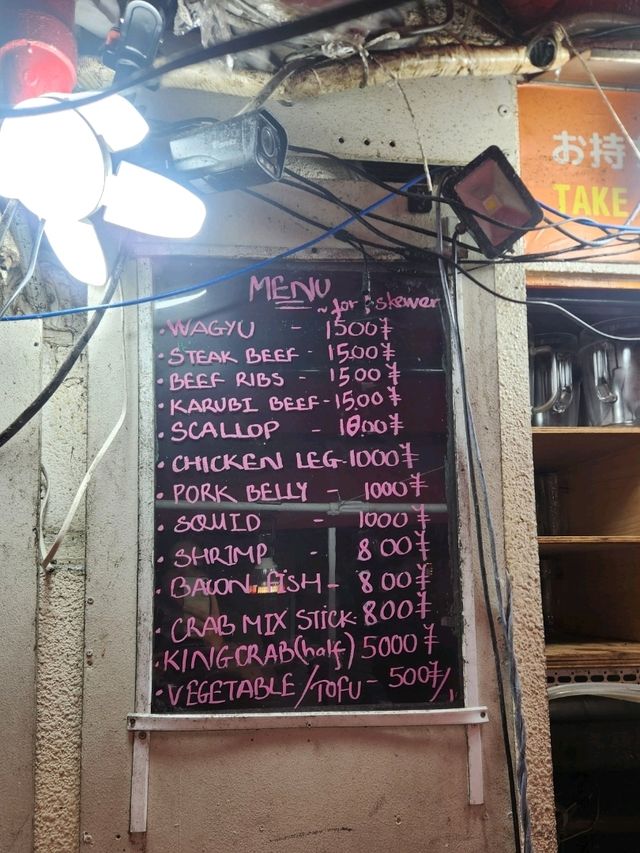 お持
TAKE
MENU
~for 1 skewer
• WAGYU - 1500¥
• STEAK BEEF - 1500¥
• BEEF RIBS - 1500¥
• KARUBI BEEF - 1500¥
• SCALLOP - 1000¥
• CHICKEN LEG - 1000¥
• PORK BELLY - 1000¥
• SQUID - 1000¥
• SHRIMP - 800¥
• BACON FISH - 800¥
• CRAB MIX STICK 800¥
• KING CRAB (half) 5000¥
• VEGETABLE/TOFU - 500¥/